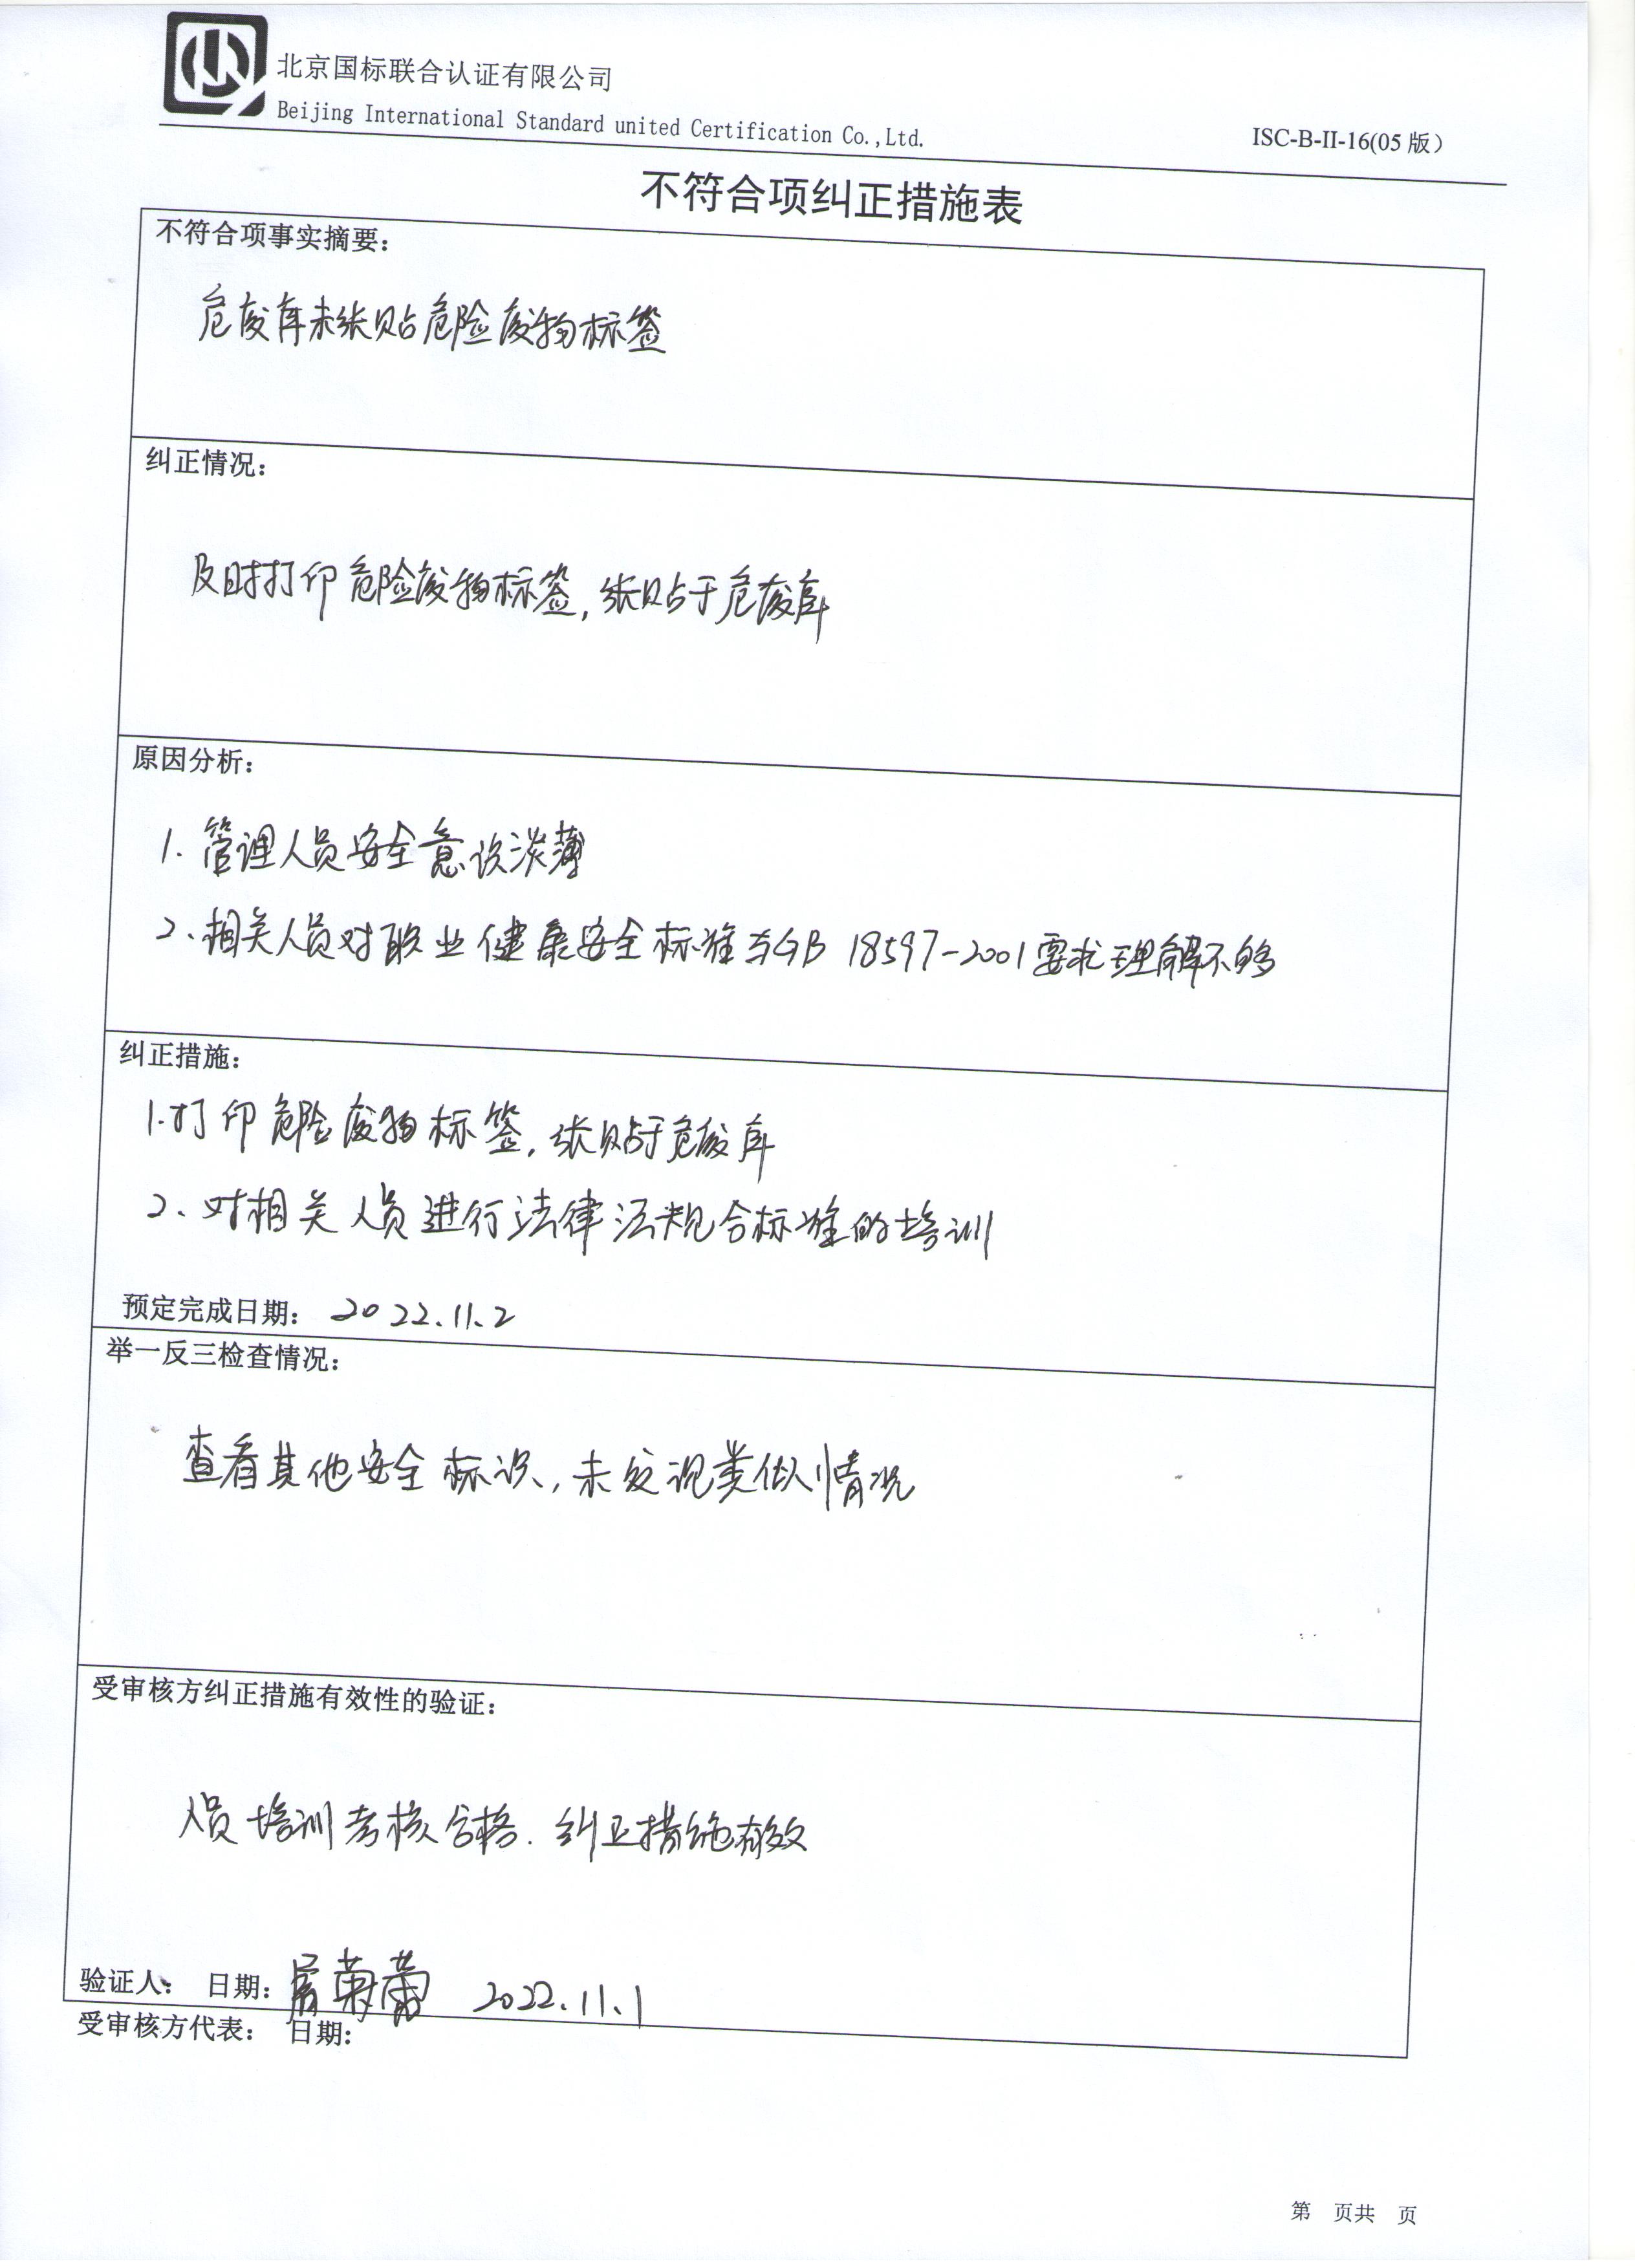 北京国标联合认证有限公司
Beijing International Standard united Certification Co.,Ltd.
ISC-B-II-16(05 版）
不符合项纠正措施表
不符合项事实摘要：
危废库未张贴危险废物标签
纠正情况：
及时打印危险废物标签，张贴于危废库
原因分析：
1. 管理人员安全意识淡薄
2、相关人员对职业健康安全标准与GB 18597-2001要求理解不够
纠正措施：
1.打印危险废物标签，张贴于危废库
2、对相关人员进行法律法规合标准的培训
预定完成日期： 2022.11.2
举一反三检查情况：
查看其他安全标识，未发现类似情况
受审核方纠正措施有效性的验证：
人员培训考核合格. 纠正措施有效
验证人： 日期： 2022.11.1
受审核方代表： 日期：
第 页共 页